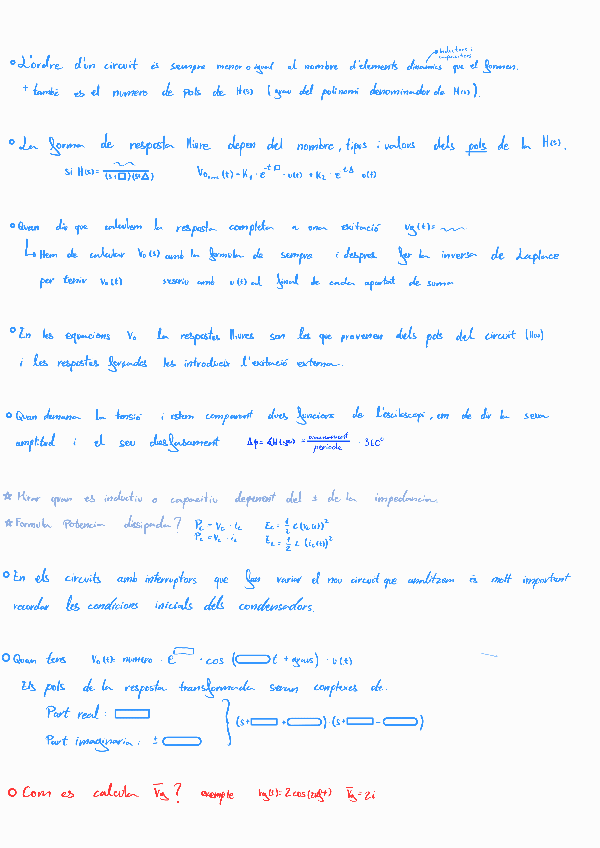 Inductors i capacitors
° L'ordre d'un circuit és sempre menor o igual al nombre d'elements dinàmics que el formen.
+ també es el numero de pols de H(s) (grau del polinomi denominador de H(s)).
° La forma de resposta lliure depen del nombre, tipus i valors dels pols de la H(s).
si H(s) = ~~ / (s+□)(s+△)    Vo(t) = K₁ · e^-t□ · u(t) + K₂ · e^-t△ u(t)
° Quan diu que calculem la resposta completa a una exitació vg(t) = ~~
↳ Hem de calcular Vo(s) amb la formula de sempre i despres fer la inversa de Laplace
per tenir Vo(t) amb u(t) al final de cada apartat de suma
° En les equacions Vo la respostes lliures son les que provenen dels pols del circuit (H(s))
i les respostes forçades les introdueix l'exitació externa.
° Quan demana la tensió i estem comparant dues funcions de l'osciloscopi, em de dir la seva
amplitud i el seu desfasament Δφ = ∢H(jω) = / periode · 360
☆ Mirar quan es inductiu o capacitiu depenent del ± de la impedancia.
☆ Formula Potencia dissipada? Pc = Vc · ic    Ec = 1/2 C (Vc(t))²
PL = VL · iL    EL = 1/2 L (iL(t))²
° En els circuits amb interruptors que fan variar el nou circuit que analitzem és molt important
recordar les condicions inicials dels condensadors.
° Quan tens Vo(t) = numero · e^▭ · cos (▭ t + graus) · u(t)
Els pols de la resposta transformada seran complexes de.
Part real : ▭
Part imaginaria : ± ▭ } (s+▭+▭) · (s+▭-▭)
° Com es calcula V̄g? exemple vg(t) = 2cos(t) V̄g = 2i